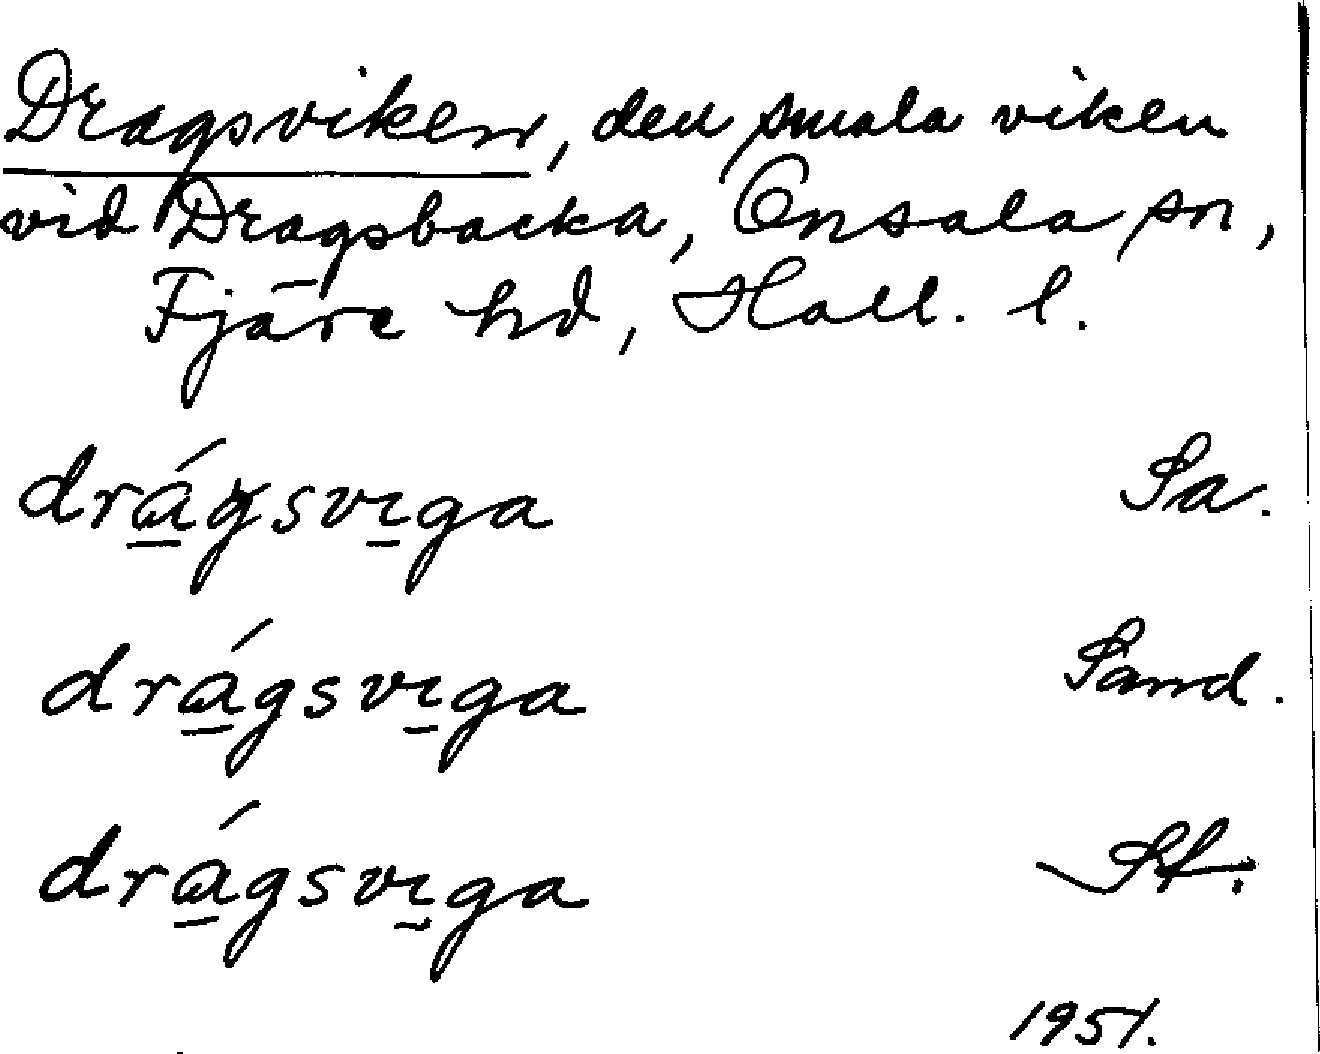 Dragsviken, den smala viken
vid Dragsbacka, Onsala sn,
Fjäre hd, Hall. l.
drágsvıga Sa.
drágsvıga Sand.
drágsvıga St.
1951.